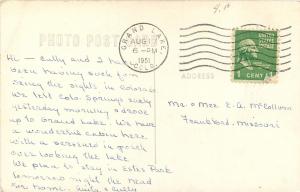 PHOTO POST
GRAND LAKE,
AUG 13
6 - PM
1951
COLO.
ADDRESS
1 CENT 1
Hi — Sully and I have
been having such fun
seeing the sights in Colorado
We left Colo. Springs early
yesterday morning & drove
up to Grand Lake. We have
a wonderful cabin here
with a screened in porch
over looking the lake
We plan to stay in Estes Park
tomorrow night then head
for home.
Mr. & Mrs. E. A. McCollum
Frankford, Missouri